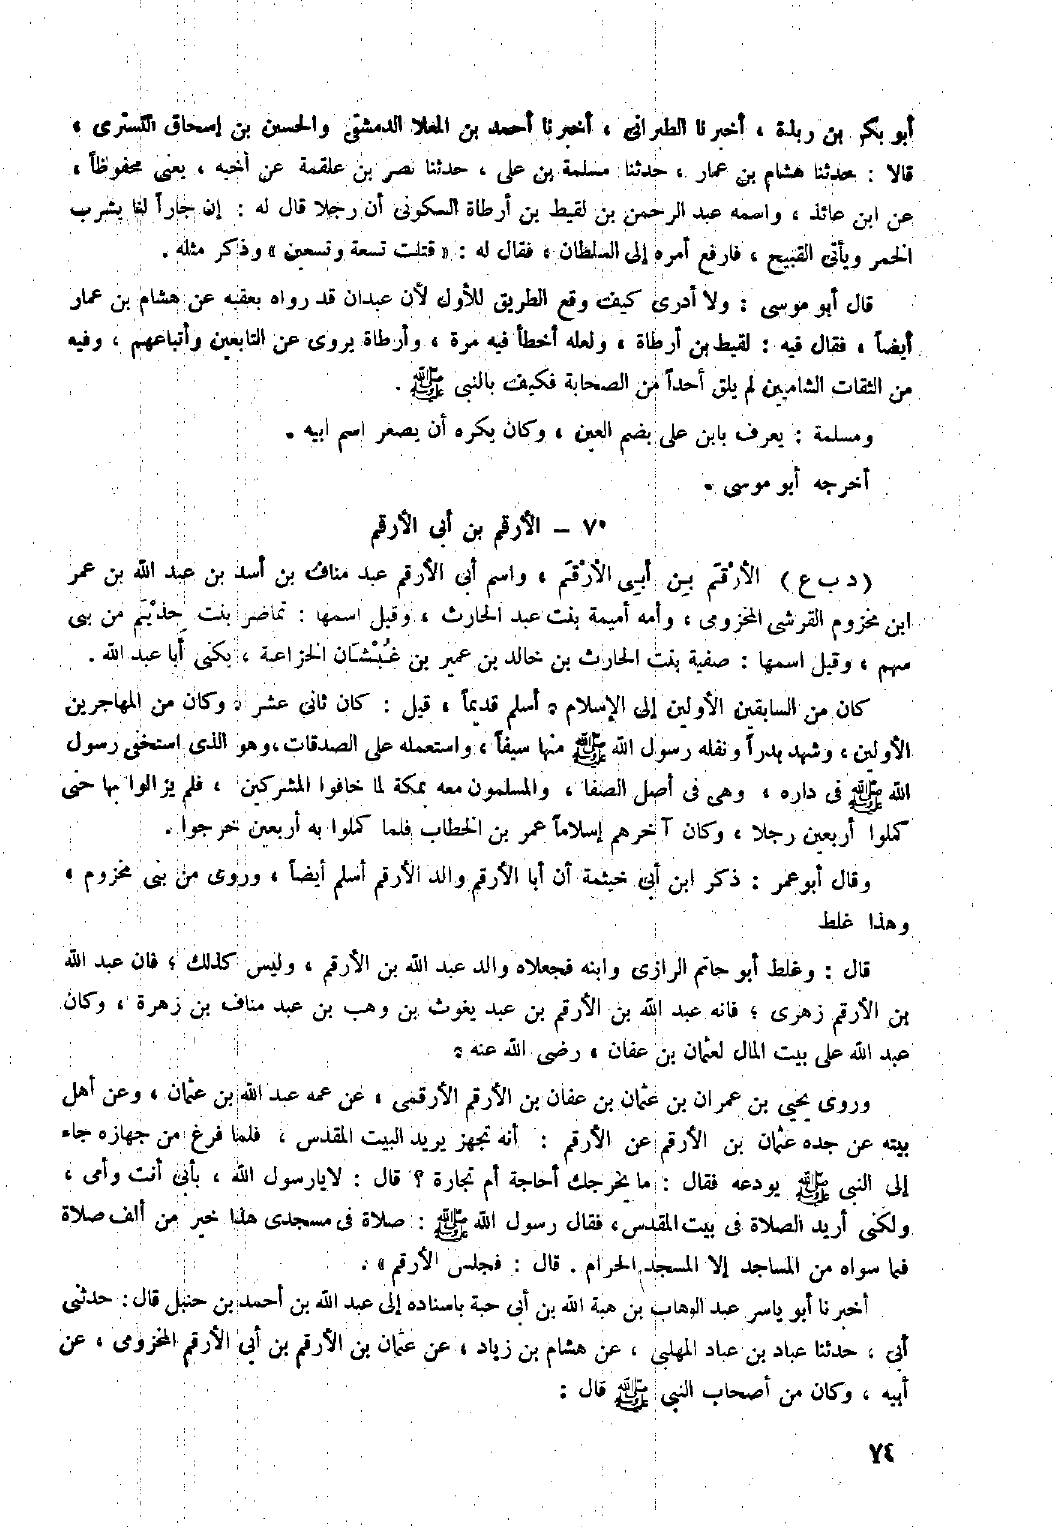 أبو بكر بن ربذة ، أخبرنا الطبرانى ، أخبرنا أحمد بن المعلا الدمشقى والحسين بن إسحاق التسترى ،
قالا : حدثنا هشام بن عمار ، حدثنا مسلمة بن على ، حدثنا نصر بن علقمة عن أخيه ، يعنى محفوظاً ،
عن ابن عائذ ، واسمه عبد الرحمن بن لقيط بن أرطاة السكونى أن رجلا قال له : إن جاراً لنا يشرب
الخمر ويأتى القبيح ، فارفع أمره إلى السلطان ، فقال له : « قتلت تسعة وتسعين » وذكر مثله .
قال أبو موسى : ولا أدرى كيف وقع الطريق للأول لأن عبدان قد رواه بعقبه عن هشام بن عمار
أيضاً ، فقال فيه : لقيط بن أرطاة ، ولعله أخطأ فيه مرة ، وأرطاة يروى عن التابعين وأتباعهم ، وفيه
من الثقات الشاميين لم يلق أحداً من الصحابة فكيف بالنبى ﷺ .
ومسلمة : يعرف بابن على بضم العين ، وكان يكره أن يصغر اسم ابيه .
أخرجه أبو موسى .
٧٠ – الأرقم بن أبى الأرقم
( د ب ع ) الأرْقَم بِن أبِى الأرْقَم ، واسم أبى الأرقم عبد مناف بن أسد بن عبد الله بن عمر
ابن مخزوم القرشى المخزومى ، وأمه أميمة بنت عبد الحارث ، وقيل اسمها : تماضر بنت حِذْيَم من بنى
سهم ، وقيل اسمها : صفية بنت الحارث بن خالد بن عمير بن غُبْشَان الخزاعية ، يكنى أبا عبد الله .
كان من السابقين الأولين إلى الإسلام . أسلم قديماً ، قيل : كان ثانى عشر . وكان من المهاجرين
الأولين ، وشهد بدراً ونفله رسول الله ﷺ منها سيفاً ، واستعمله على الصدقات ، وهو الذى استخفى رسول
الله ﷺ فى داره ، وهى فى أصل الصفا ، والمسلمون معه بمكة لما خافوا المشركين ، فلم يزالوا بها حتى
كملوا أربعين رجلا ، وكان آخرهم إسلاماً عمر بن الخطاب فلما كملوا به أربعين خرجوا .
وقال أبو عمر : ذكر ابن أبى خيثمة أن أبا الأرقم والد الأرقم أسلم أيضاً ، وروى من بنى مخزوم ،
وهذا غلط
قال : وغلط أبو حاتم الرازى وابنه فجعلاه والد عبد الله بن الأرقم ، وليس كذلك ؛ فان عبد الله
بن الأرقم زهرى ؛ فانه عبد الله بن الأرقم بن عبد يغوث بن وهب بن عبد مناف بن زهرة ، وكان
عبد الله على بيت المال لعثمان بن عفان ، رضى الله عنه .
وروى يحيى بن عمران بن عثمان بن عفان بن الأرقم الأرقمى ، عن عمه عبد الله بن عثمان ، وعن أهل
بيته عن جده عثمان بن الأرقم عن الأرقم : أنه تجهز يريد البيت المقدس ، فلما فرغ من جهازه جاء
إلى النبى ﷺ يودعه فقال : ما يخرجك أحاجة أم تجارة ؟ قال : لا يا رسول الله ، بأبى أنت وأمى ،
ولكنى أريد الصلاة فى بيت المقدس ، فقال رسول الله ﷺ : صلاة فى مسجدى هذا خير من ألف صلاة
فيما سواه من المساجد إلا المسجد الحرام . قال : فجلس الأرقم » .
أخبرنا أبو ياسر عبد الوهاب بن هبة الله بن أبى حبة باسناده إلى عبد الله بن أحمد بن حنبل قال : حدثنى
أبى ، حدثنا عباد بن عباد المهلبى ، عن هشام بن زياد ، عن عثمان بن الأرقم بن أبى الأرقم المخزومى ، عن
أبيه ، وكان من أصحاب النبى ﷺ قال :
٧٤